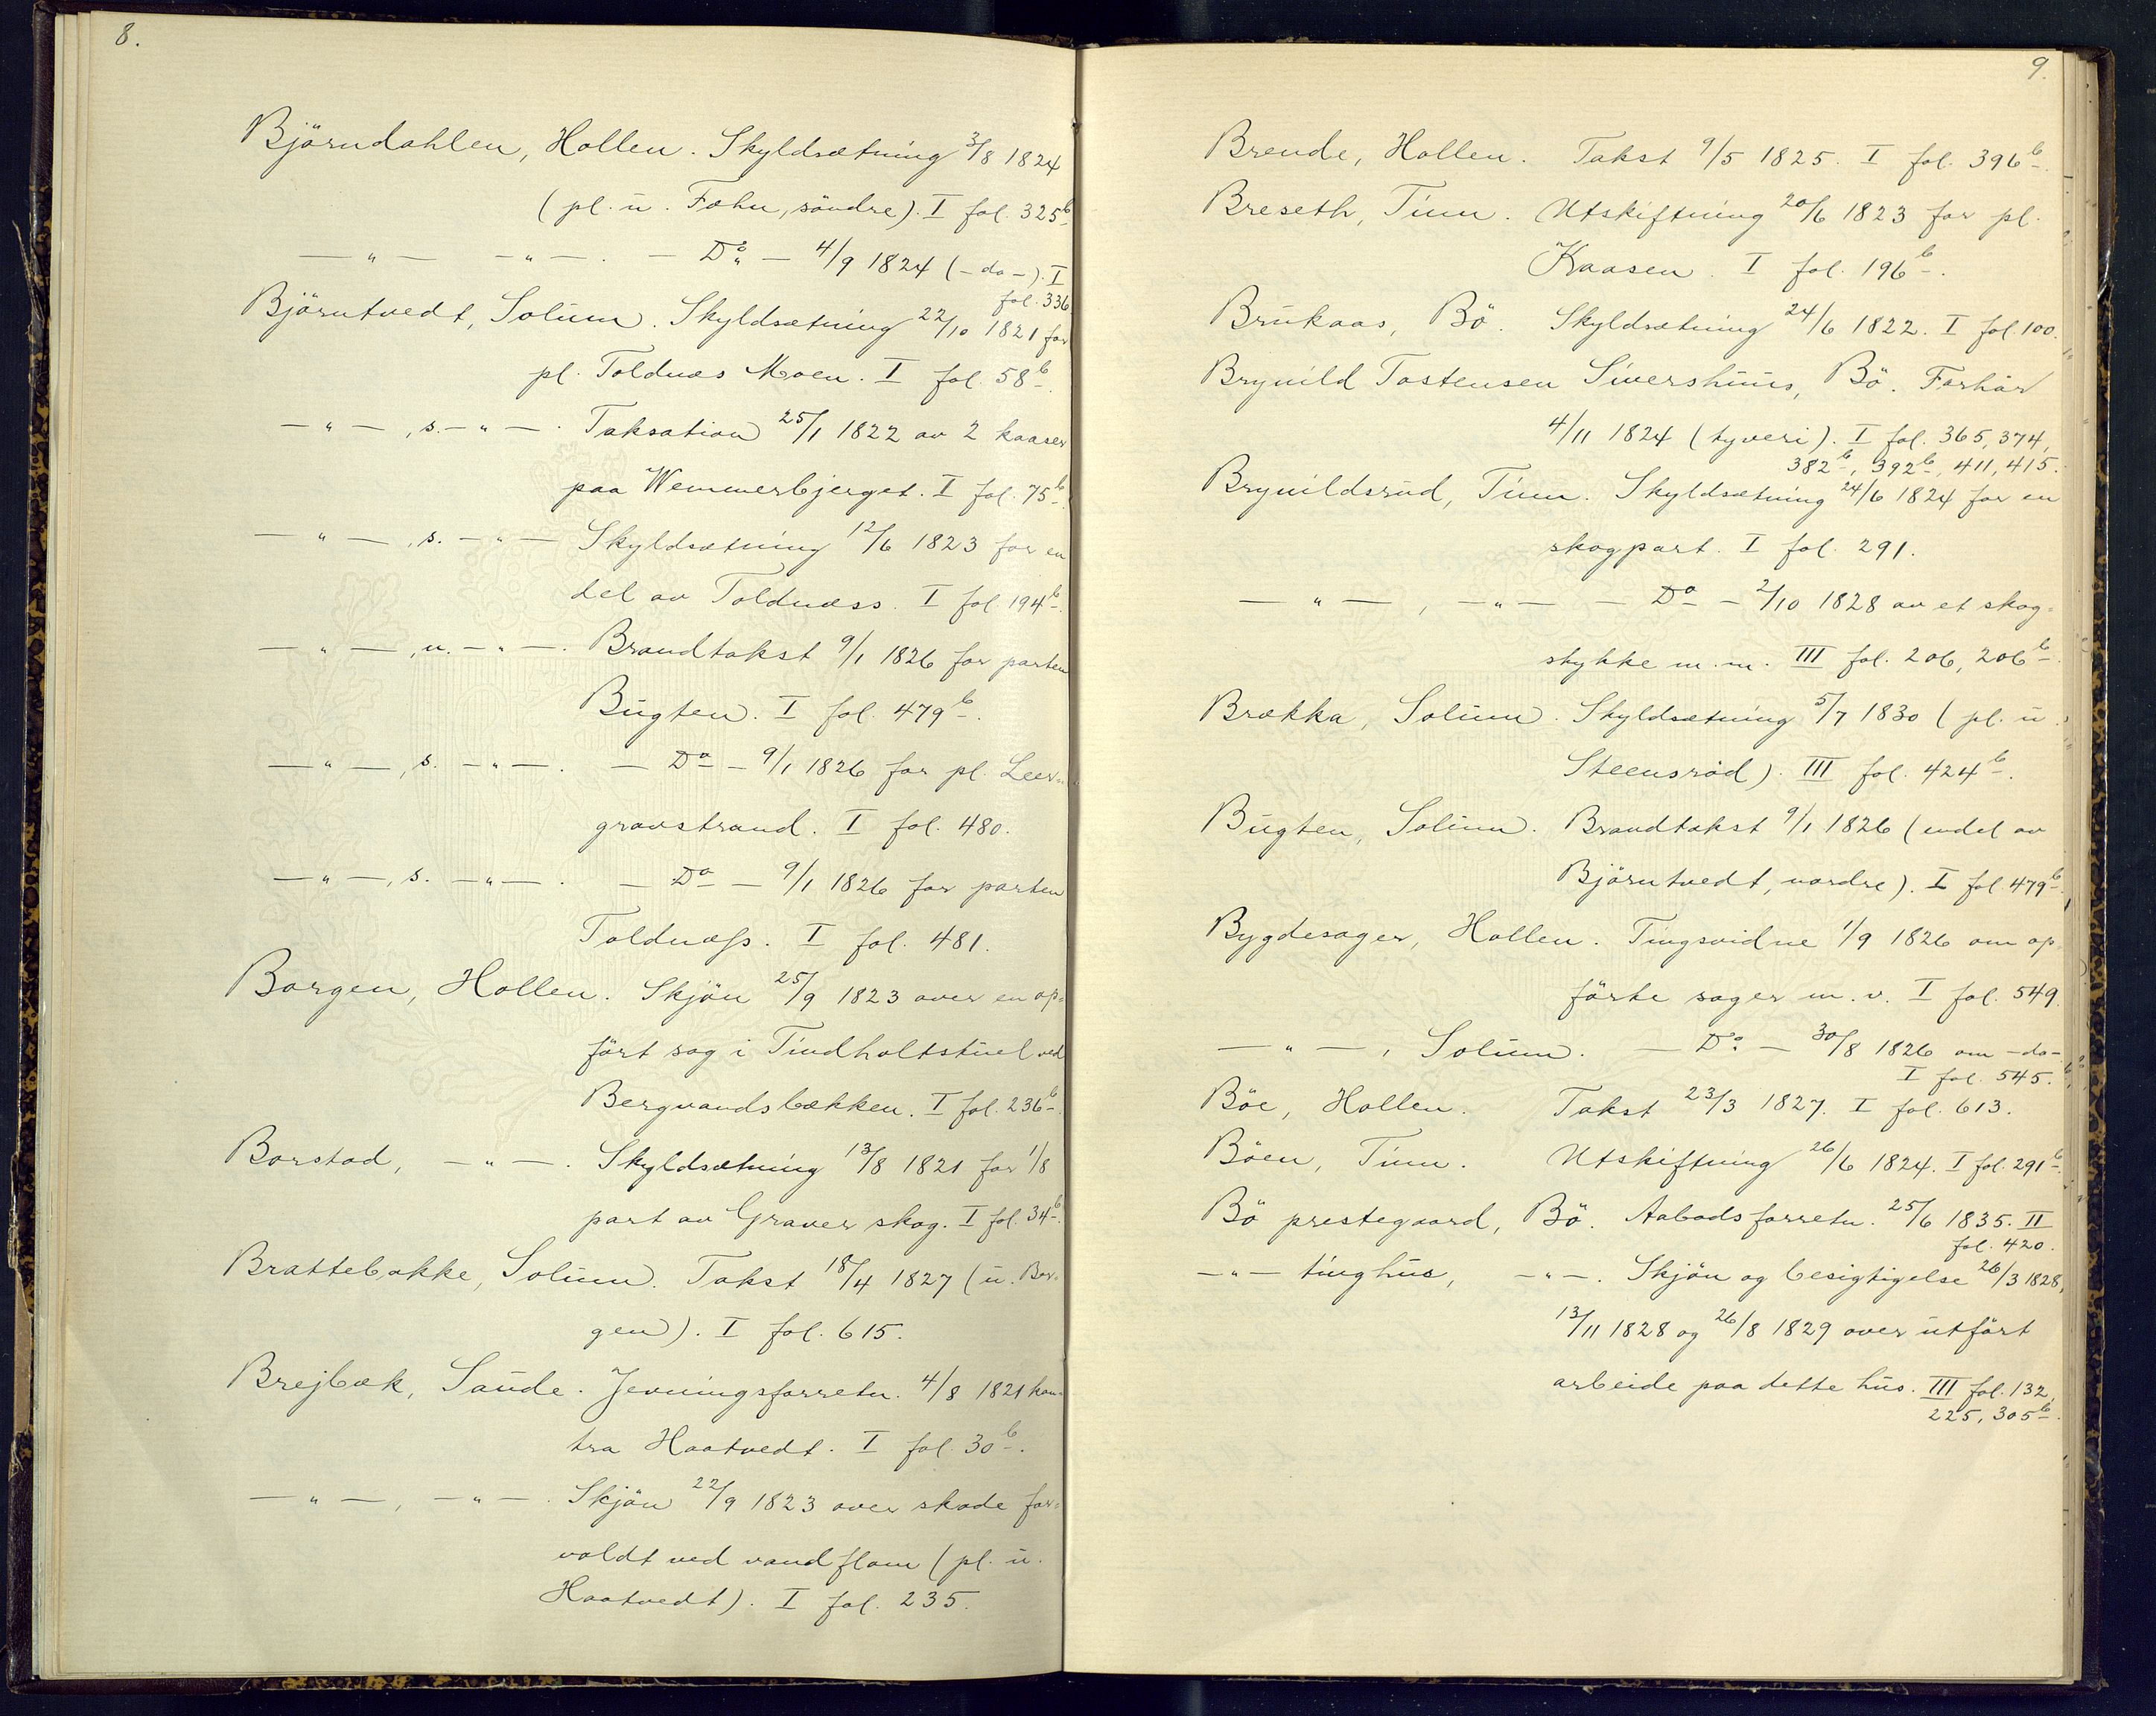 8.
Björndahlen, Hollen. Skyldsætning 3/8 1824
(pl. u. Fæhn, söndre). I fol. 325b
— " — — " — . — Do — 4/9 1824 (– do –). I
fol. 336
Björntvedt, Solum. Skyldsætning 22/10 1821 for
pl. Toldnæs Moen. I fol. 58b.
— " —, s. — " — . Taksation 25/1 1822 av 2 kaaser
paa Wemmerbjerget. I fol. 75b.
— " —, s. — " — Skyldsætning 12/6 1823 for en
del av Toldnæss. I fol. 194b.
— " —, n. — " — . Brandtakst 9/1 1826 for parten
Bugten. I fol. 479b.
— " —, s. — " — . — Do — 9/1 1826 for pl. Leer=
gravstrand. I fol. 480.
— " —, s. — " — . — Do — 9/1 1826 for parten
Toldnæss. I fol. 481.
Borgen, Hollen. Skjön 25/9 1823 over en op=
fört sag i Tindholtstuel ved
Bergvandsbækken. I fol. 236b.
Borstad, — " — . Skyldsætning 13/8 1821 for 1/8
part av Graver skog. I fol. 34b.
Brattebakke, Solum. Takst 18/4 1827 (u. Bor=
gen). I fol. 615.
Brejbæk, Saude. Jevningsforretn. 4/8 1821 kon=
tra Haatvedt. I fol. 30b.
— " —, — " — . Skjön 22/9 1823 over skade for=
voldt ved vandflom (pl. u.
Haatvedt). I fol. 235.
9.
Brende, Hollen. Takst 9/5 1825. I fol. 396b.
Breseth, Tinn. Utskiftning 20/6 1823 for pl.
Kaasen. I fol. 196b.
Brukaas, Bö. Skyldsætning 24/6 1822. I fol. 100.
Brynild Tostensen Sivershuus, Bö. Forhör
4/11 1824 (tyveri). I fol. 365, 374,
382b, 392b, 411, 415.
Brynildsrud, Tinn. Skyldsætning 24/6 1824 for en
skogpart. I fol. 291.
— " —, — " — — Do — 2/10 1828 av et skog=
stykke m.m. III fol. 206, 206b.
Brække, Solum. Skyldsætning 5/7 1830 (pl. u.
Steensröd). III fol. 424b.
Bugten, Solum. Brandtakst 9/1 1826 (endel av
Björntvedt, nordre). I fol. 479b.
Bygdesager, Hollen. Tingsvidne 1/9 1826 om op=
förte sager m. v. I fol. 549.
— " —, Solum. — Do — 30/8 1826 om – do –
I fol. 545.
Böe, Hollen. Takst 23/3 1827. I fol. 613.
Böen, Tinn. Utskiftning 26/6 1824. I fol. 291b.
Bö prestegaard, Bö. Aabodsforretn. 25/6 1835. II
fol. 420.
— " — tinghus, — " — . Skjön og besigtigelse 26/3 1828,
13/11 1828 og 26/8 1829 over utfört
arbeide paa dette hus. III fol. 132,
225, 305b.